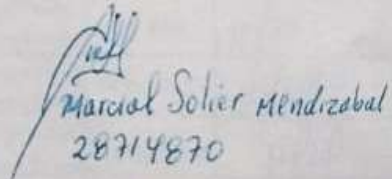 Marcial Solier Mendizabal
28714870